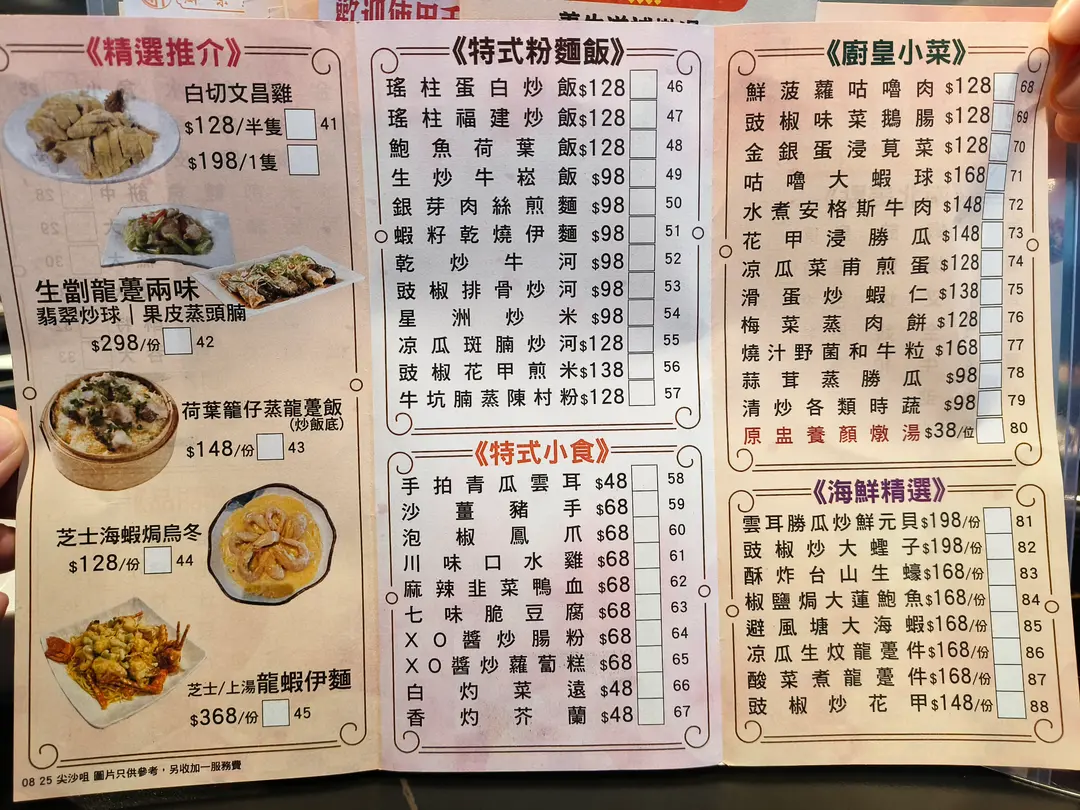 歡迎使用
《精選推介》
白切文昌雞
$128/半隻 41
$198/1隻
生劏龍躉兩味
翡翠炒球｜果皮蒸頭腩
$298/份 42
荷葉籠仔蒸龍躉飯
(炒飯底)
$148/份 43
芝士海蝦焗烏冬
$128/份 44
芝士/上湯龍蝦伊麵
$368/份 45
08 25 尖沙咀 圖片只供參考，另收加一服務費
《特式粉麵飯》
瑤柱蛋白炒飯$128 46
瑤柱福建炒飯$128 47
鮑魚荷葉飯$128 48
生炒牛崧飯$98 49
銀芽肉絲煎麵$98 50
蝦籽乾燒伊麵$98 51
乾炒牛河$98 52
豉椒排骨炒河$98 53
星洲炒米$98 54
凉瓜斑腩炒河$128 55
豉椒花甲煎米$138 56
牛坑腩蒸陳村粉$128 57
《特式小食》
手拍青瓜雲耳$48 58
沙薑豬手$68 59
泡椒鳳爪$68 60
川味口水雞$68 61
麻辣韭菜鴨血$68 62
七味脆豆腐$68 63
XO醬炒腸粉$68 64
XO醬炒蘿蔔糕$68 65
白灼菜遠$48 66
香灼芥蘭$48 67
《廚皇小菜》
鮮菠蘿咕嚕肉$128 68
豉椒味菜鵝腸$128 69
金銀蛋浸莧菜$128 70
咕嚕大蝦球$168 71
水煮安格斯牛肉$148 72
花甲浸勝瓜$148 73
凉瓜菜甫煎蛋$128 74
滑蛋炒蝦仁$138 75
梅菜蒸肉餅$128 76
燒汁野菌和牛粒$168 77
蒜茸蒸勝瓜$98 78
清炒各類時蔬$98 79
原盅養顏燉湯$38/位 80
《海鮮精選》
雲耳勝瓜炒鮮元貝$198/份 81
豉椒炒大蟶子$198/份 82
酥炸台山生蠔$168/份 83
椒鹽焗大蓮鮑魚$168/份 84
避風塘大海蝦$168/份 85
凉瓜生炆龍躉件$168/份 86
酸菜煮龍躉件$168/份 87
豉椒炒花甲$148/份 88